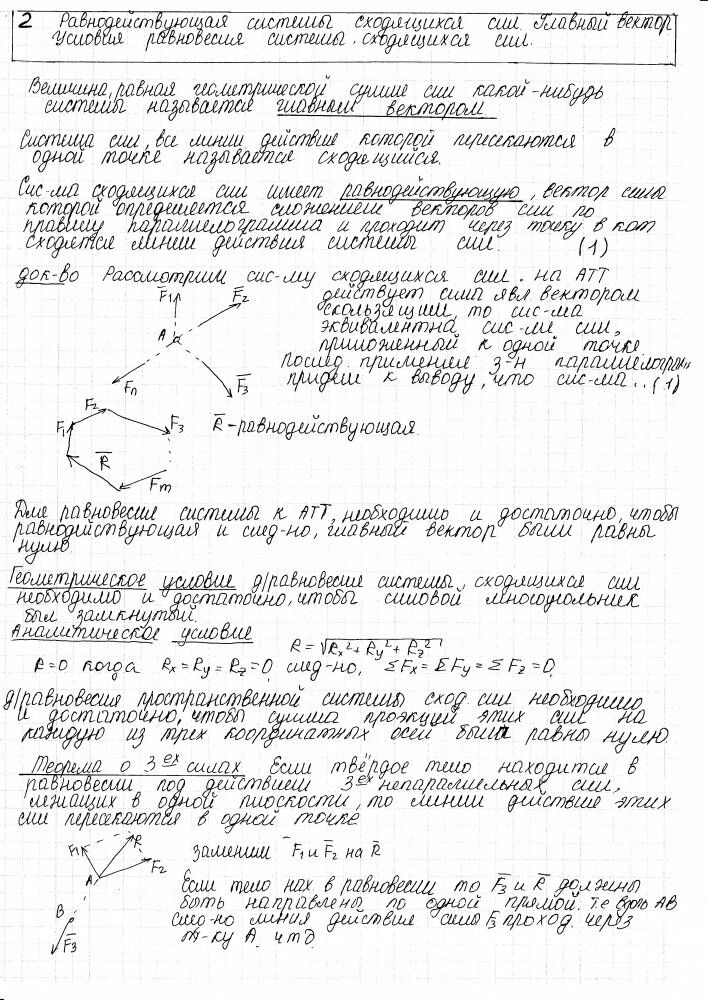 2 Равнодействующая системы сходящихся сил. Главный вектор
Условия равновесия системы сходящихся сил.
Величина, равная геометрической сумме сил какой-нибудь
системы называется главным вектором
Система сил, все линии действие которой пересекаются в
одной точке называется сходящийся.
Сис-ма сходящихся сил имеет равнодействующую, вектор силы
которой определяется сложением векторов сил по
правилу параллелограмма и проходит через точку в кот
сходятся линии действия системы сил. (1)
док-во Рассмотрим сис-му сходящихся сил. на АТТ
F1 F2 действует сила явл вектором
скользящим, то сис-ма
A эквивалентна сис-ме сил,
приложенный к одной точке
Fn F3 послед. применяя з-н параллелограм
придём к выводу, что сис-ма..(1)
F1 F2 F3 R Fm R̅ - равнодействующая.
Для равновесие системы к АТТ, необходимо и достаточно, чтобы
равнодействующая и след-но, главный вектор были равны
нулю.
Геометрическое условие д/равновесия системы, сходящихся сил
необходимо и достаточно, чтобы силовой многоугольник
был замкнутый.
Аналитическое условие R=√Rx²+Ry²+Rz²
R=0 когда Rx=Ry=Rz=0, след-но, ΣFx=ΣFy=ΣFz=0.
д/равновесия пространственной системы сход. сил необходимо
и достаточно, чтобы сумма проэкций этих сил на
каждую из трех координатных осей были равны нулю.
Теорема о 3ех силах Если твёрдое тело находится в
равновесии под действием 3ех непараллельных сил,
лежащих в одной плоскости, то линии действие этих
сил пересекаются в одной точке
F1 R F2 A заменим F̅1 и F̅2 на R̅
Если тело нах. в равновесии то F̅3 и R̅ должны
B быть направлены по одной прямой. Те вдоль AB
F̅3 след-но линия действие силы F̅3 проход. через
т-ку A. чтд